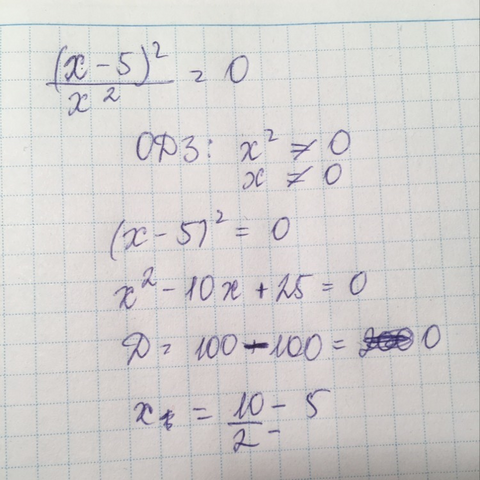 (x - 5)² / x² = 0
ОДЗ: x² ≠ 0
x ≠ 0
(x - 5)² = 0
x² - 10x + 25 = 0
D = 100 - 100 = 0
x = 10/2 = 5